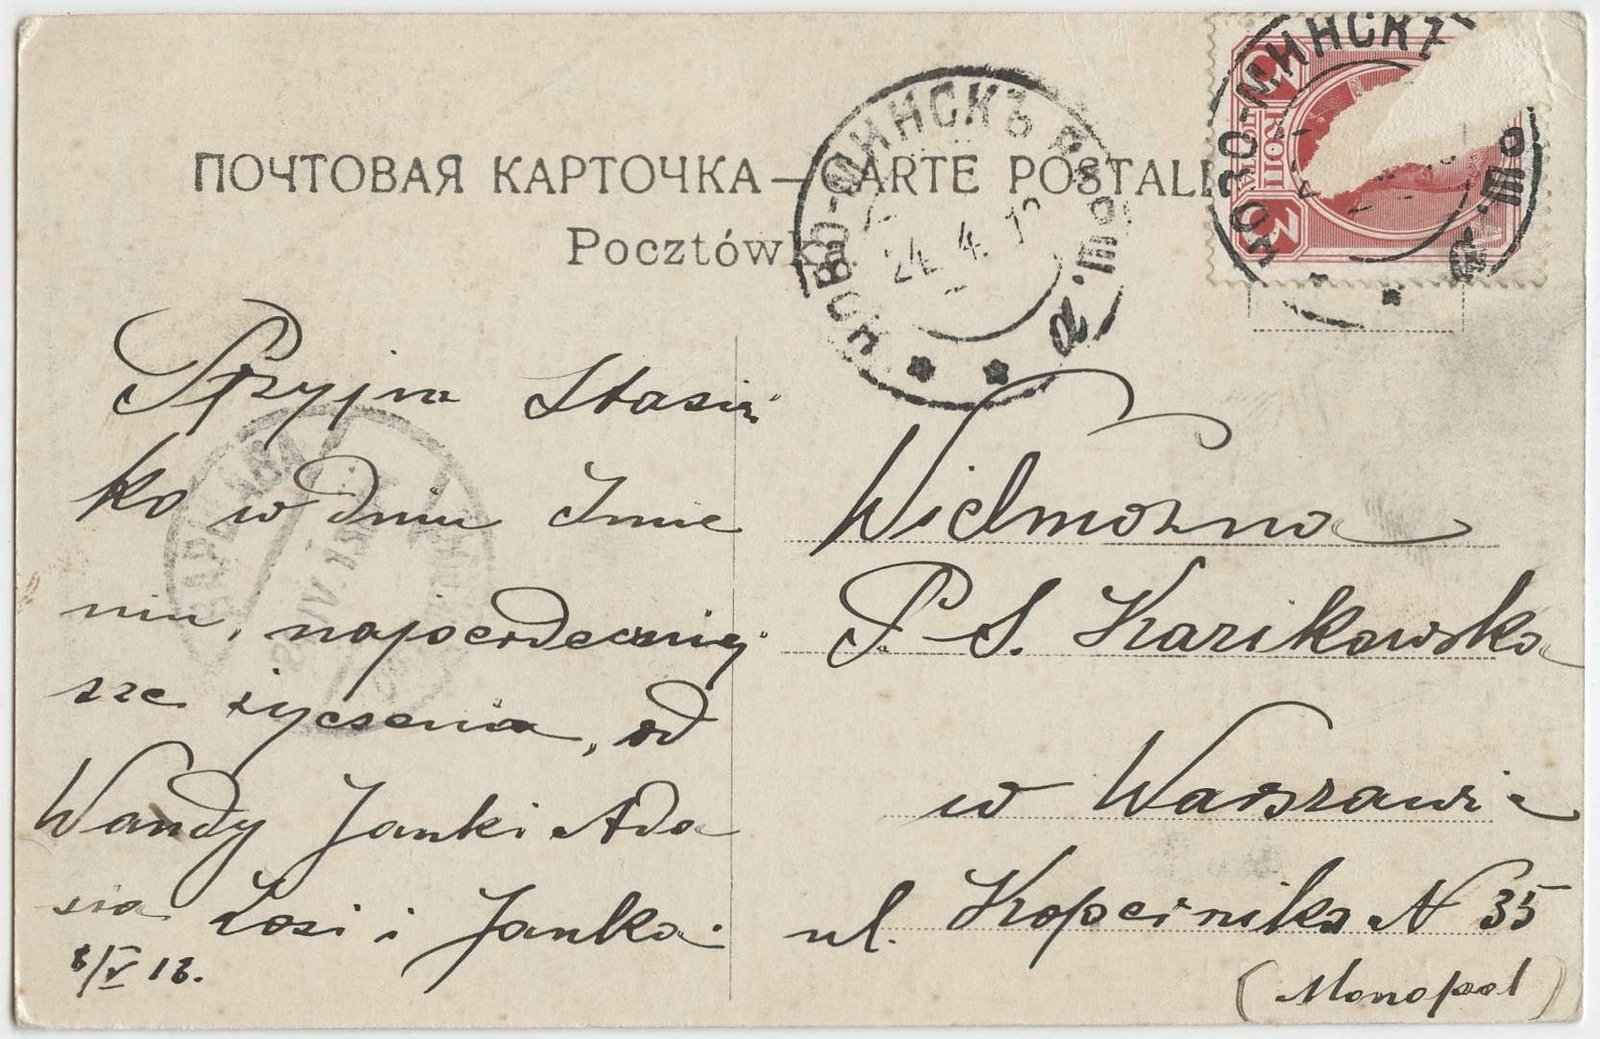 ПОЧТОВАЯ КАРТОЧКА — CARTE POSTALE
Pocztówka
НОВО-МИНСКЪ
НОВО-МИНСКЪ
24. 4. 1
ВАРШАВА
3
3
Przyjm Stasiń
ko w dniu Imie
nin, najserdeczniej
sze życzenia, od
Wandy Janki Ada
sia Zosi i Janka.
8/V 13.
Wielmożna
P. S. Karikowska
w Warszawie
ul. Kopernika N 35
(Monopol)